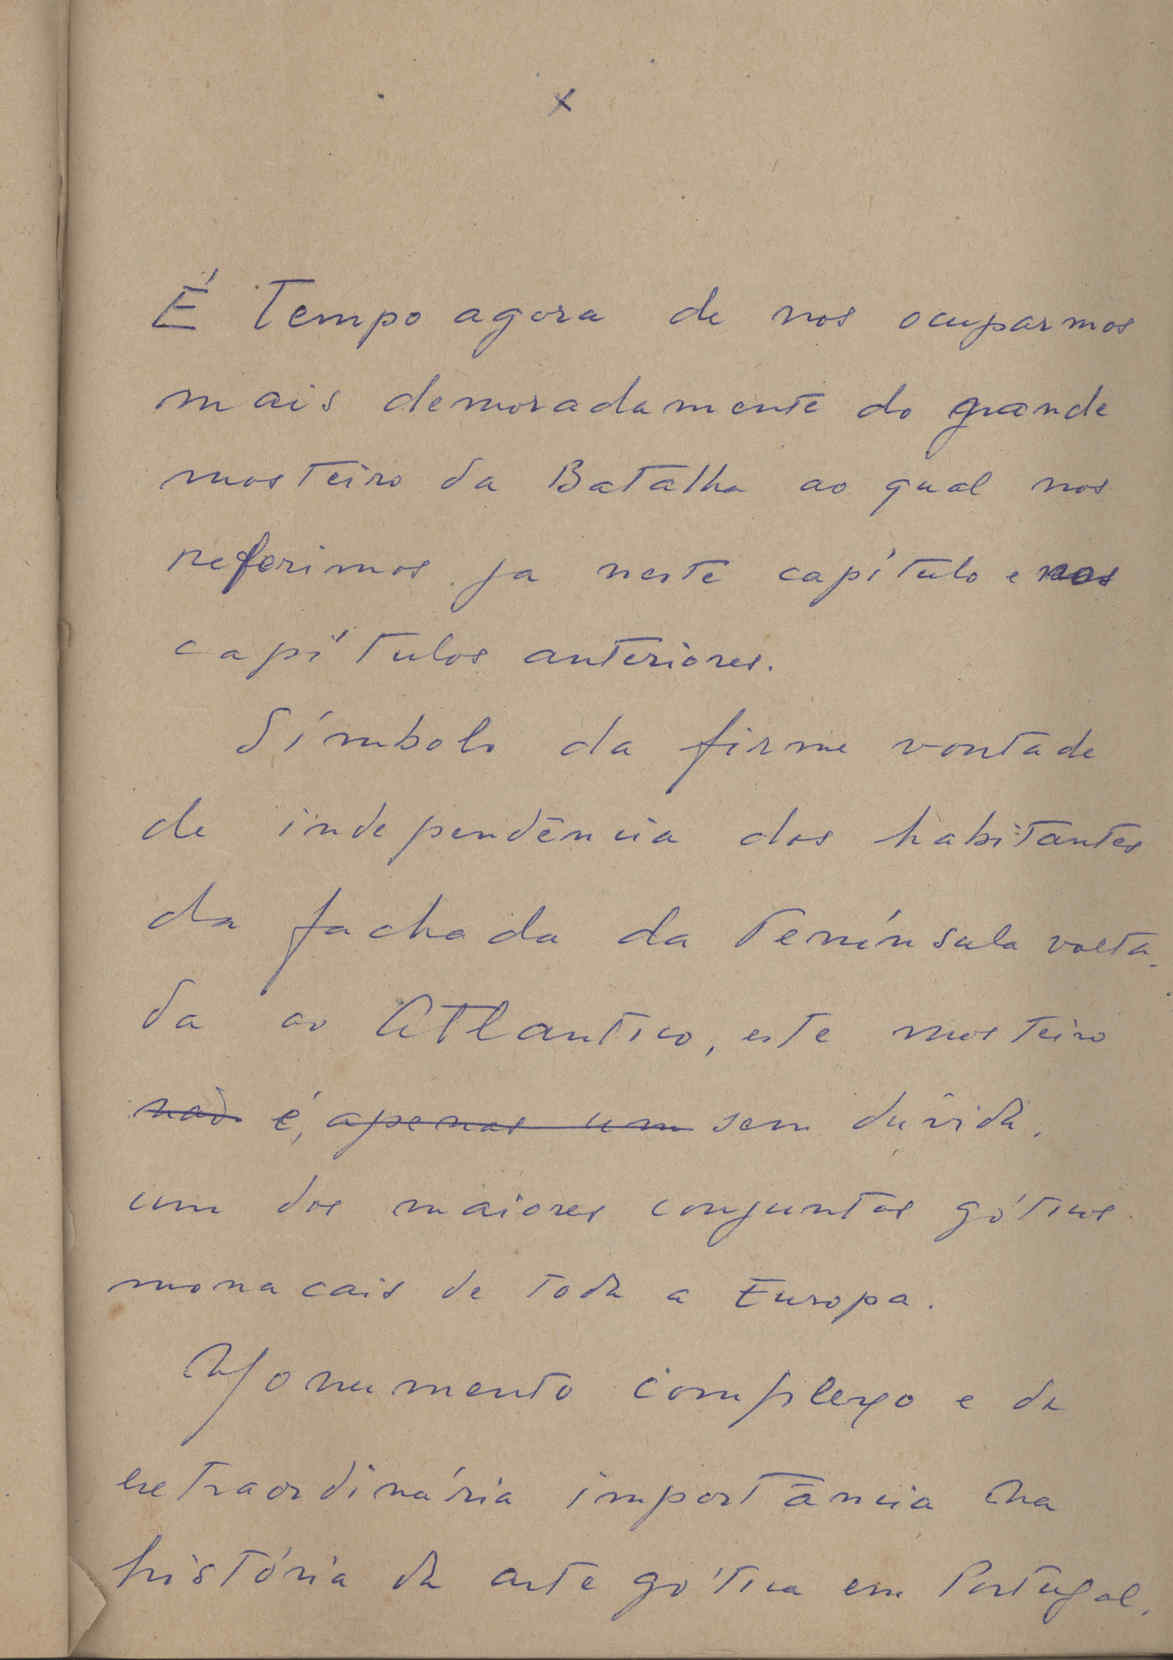 x
É tempo agora de nos ocuparmos
mais demoradamente do grande
mosteiro da Batalha ao qual nos
referimos ja neste capítulo e nos
capítulos anteriores.
Símbolo da firme vontade
de independência dos habitantes
da fachada da Península volta-
da ao Atlantico, este mosteiro
não é, apenas um sem dúvida,
um dos maiores conjuntos góticos
monacais de toda a Europa.
Monumento complexo e de
extraordinária importância na
história da arte gótica em Portugal,